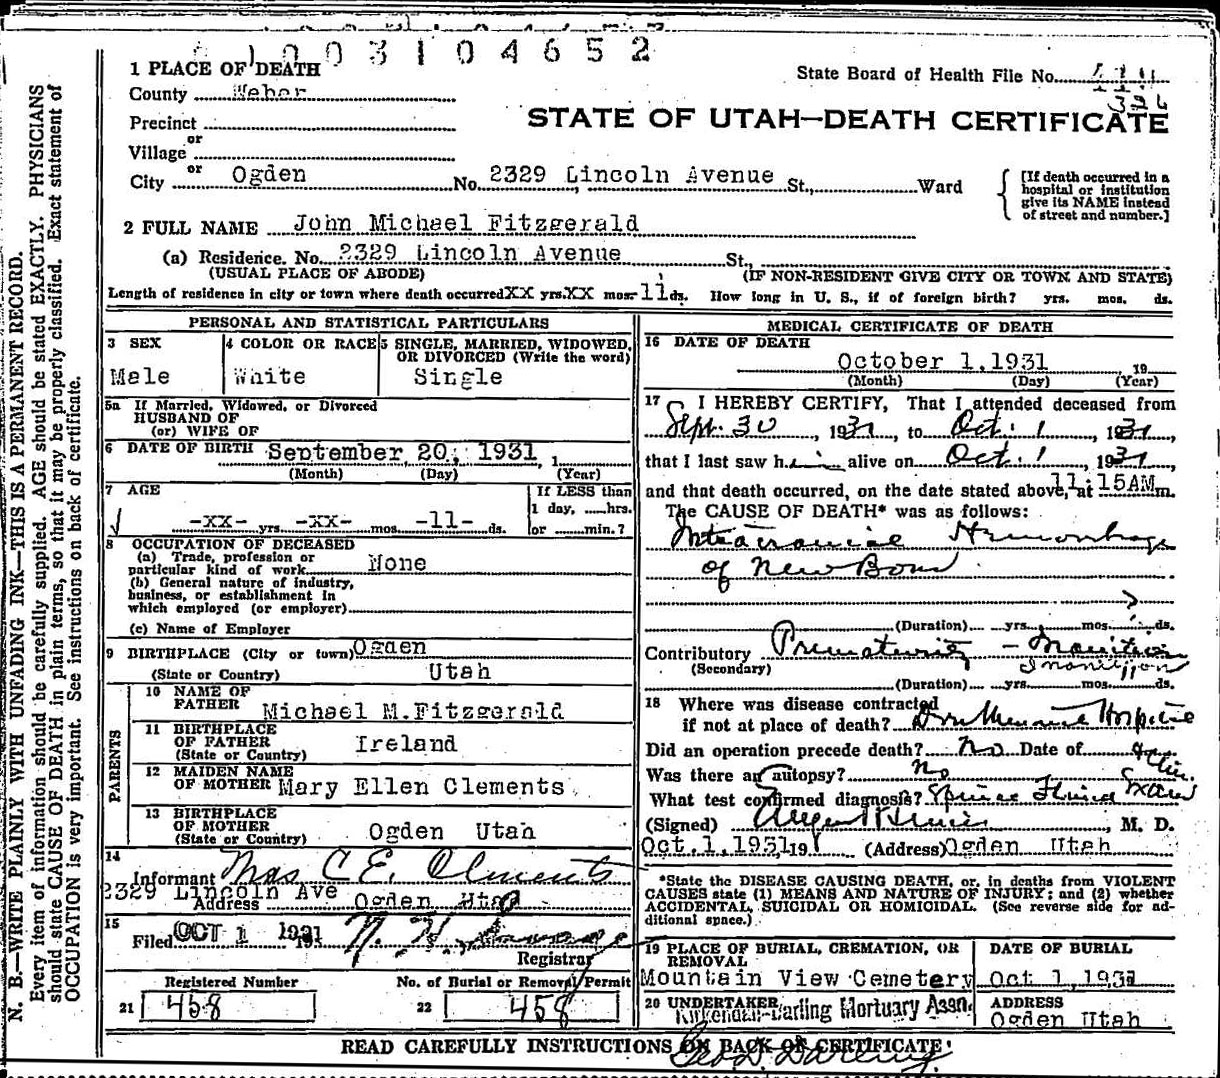 1003104652
1 PLACE OF DEATH
State Board of Health File No.
326
County Weber
STATE OF UTAH—DEATH CERTIFICATE
Precinct
or
Village
or
City Ogden No. 2329 Lincoln Avenue St., Ward
[If death occurred in a
hospital or institution
give its NAME instead
of street and number.]
2 FULL NAME John Michael Fitzgerald
(a) Residence. No. 2329 Lincoln Avenue St.,
(USUAL PLACE OF ABODE) (IF NON-RESIDENT GIVE CITY OR TOWN AND STATE)
Length of residence in city or town where death occurred XX yrs. XX mos. 11 ds. How long in U. S., if of foreign birth? yrs. mos. ds.
PERSONAL AND STATISTICAL PARTICULARS
3 SEX 4 COLOR OR RACE 5 SINGLE, MARRIED, WIDOWED,
OR DIVORCED (Write the word)
Male White Single
5a If Married, Widowed, or Divorced
HUSBAND OF
(or) WIFE OF
6 DATE OF BIRTH September 20, 1931, 1
(Month) (Day) (Year)
7 AGE If LESS than
1 day, hrs.
-XX- yrs. -XX- mos. -11- ds. or min.?
8 OCCUPATION OF DECEASED
(a) Trade, profession or
particular kind of work None
(b) General nature of industry,
business, or establishment in
which employed (or employer)
(c) Name of Employer
9 BIRTHPLACE (City or town) Ogden
(State or Country) Utah
PARENTS
10 NAME OF
FATHER Michael M.Fitzgerald
11 BIRTHPLACE
OF FATHER Ireland
(State or Country)
12 MAIDEN NAME
OF MOTHER Mary Ellen Clements
13 BIRTHPLACE
OF MOTHER Ogden Utah
(State or Country)
14
Informant Mrs C E. Clements
2329 Lincoln Ave
Address Ogden Utah
15
Filed OCT 1 1931
Registrar
Registered Number No. of Burial or Removal Permit
21 458 22 458
MEDICAL CERTIFICATE OF DEATH
16 DATE OF DEATH
October 1,1931 19
(Month) (Day) (Year)
17 I HEREBY CERTIFY, That I attended deceased from
Sept. 30, 1931, to Oct. 1, 1931,
that I last saw him alive on Oct. 1, 1931,
and that death occurred, on the date stated above, at 11:15AM m.
The CAUSE OF DEATH* was as follows:
Intracranial Hemorrhage
of New Born
(Duration) yrs. mos. ds.
Contributory Prematurity - Inanition
(Secondary) Inanition
(Duration) yrs. mos. ds.
18 Where was disease contracted
if not at place of death? Dee Memorial Hospital
Did an operation precede death? No Date of
Was there an autopsy? No
What test confirmed diagnosis? Spinal Fluid Exam
(Signed) , M. D.
Oct.1,1931, 19 (Address) Ogden Utah
*State the DISEASE CAUSING DEATH, or, in deaths from VIOLENT
CAUSES state (1) MEANS AND NATURE OF INJURY; and (2) whether
ACCIDENTAL, SUICIDAL OR HOMICIDAL. (See reverse side for ad-
ditional space.)
19 PLACE OF BURIAL, CREMATION, OR
REMOVAL
DATE OF BURIAL
Mountain View Cemetery Oct 1,1931
20 UNDERTAKER ADDRESS
Kirkendall-Darling Mortuary Assn. Ogden Utah
READ CAREFULLY INSTRUCTIONS ON BACK OF CERTIFICATE
Geo. D. Darling.
N. B.—WRITE PLAINLY WITH UNFADING INK—THIS IS A PERMANENT RECORD.
Every item of information should be carefully supplied. AGE should be stated EXACTLY. PHYSICIANS
should state CAUSE OF DEATH in plain terms, so that it may be properly classified. Exact statement of
OCCUPATION is very important. See instructions on back of certificate.